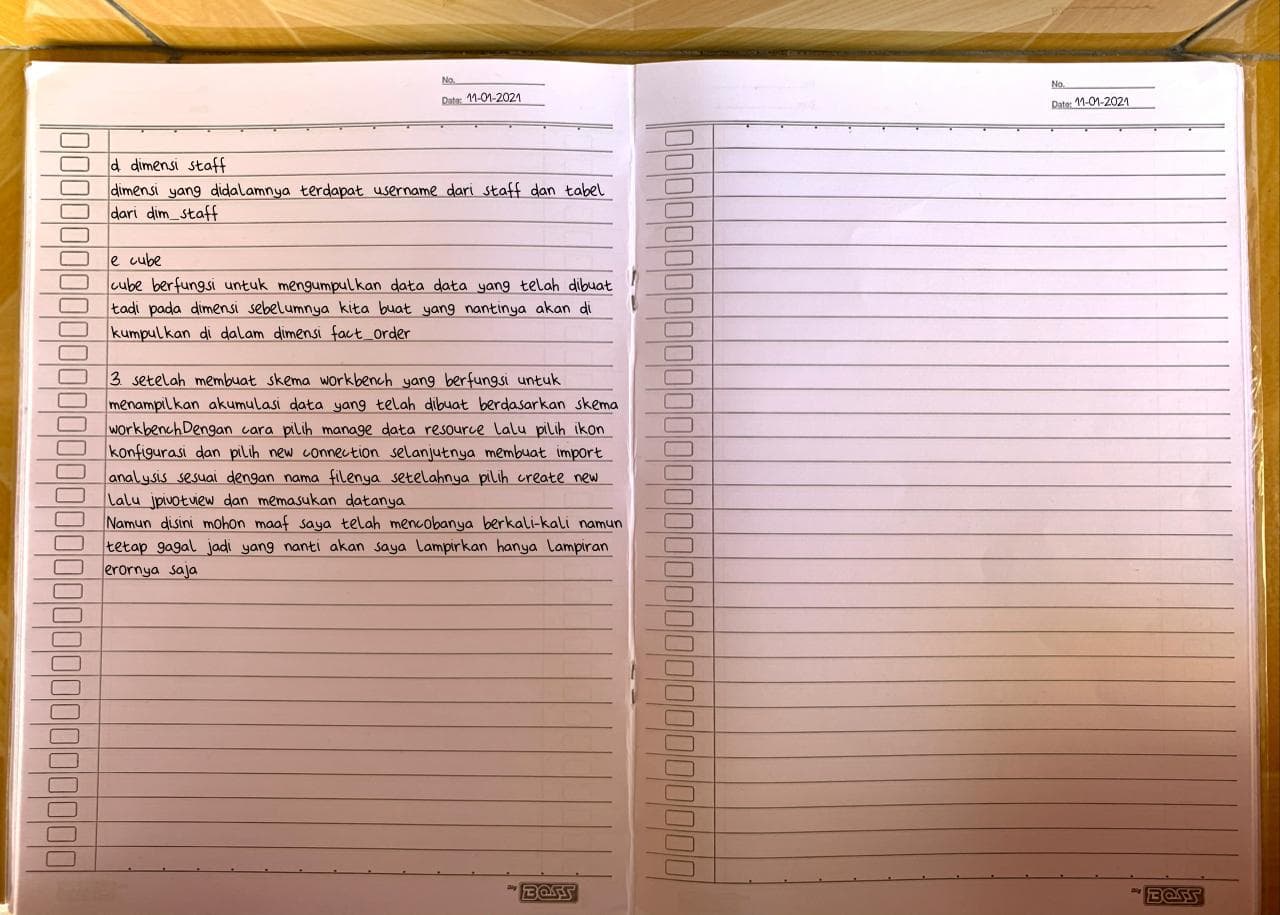 No.
Date: 11-01-2021
d dimensi staff
dimensi yang didalamnya terdapat username dari staff dan tabel
dari dim_staff
e cube
cube berfungsi untuk mengumpulkan data data yang telah dibuat
tadi pada dimensi sebelumnya kita buat yang nantinya akan di
kumpulkan di dalam dimensi fact_order
3. setelah membuat skema workbench yang berfungsi untuk
menampilkan akumulasi data yang telah dibuat berdasarkan skema
workbenchDengan cara pilih manage data resource lalu pilih ikon
konfigurasi dan pilih new connection selanjutnya membuat import
analysis sesuai dengan nama filenya setelahnya pilih create new
lalu jpivotview dan memasukan datanya
Namun disini mohon maaf saya telah mencobanya berkali-kali namun
tetap gagal jadi yang nanti akan saya lampirkan hanya lampiran
erornya saja
Big BOSS
No.
Date: 11-01-2021
Big BOSS